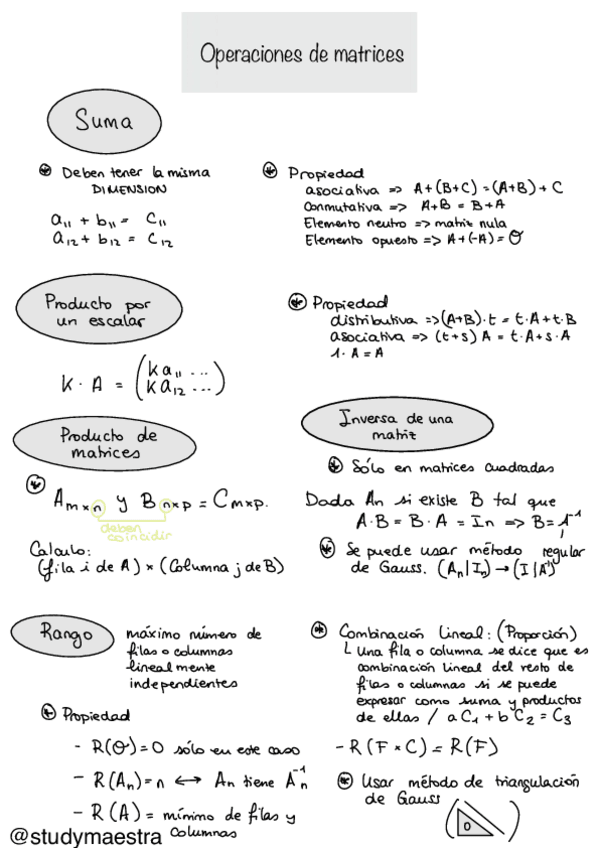 Operaciones de matrices
Suma
Deben tener la misma
DIMENSION
a₁₁ + b₁₁ = C₁₁
a₁₂ + b₁₂ = C₁₂
Propiedad
asociativa => A+(B+C) = (A+B) + C
Conmutativa => A+B = B+A
Elemento neutro => matriz nula
Elemento opuesto => A+(-A) = O
Producto por
un escalar
K · A = (K a₁₁ ...
K a₁₂ ...)
Propiedad
distributiva => (A+B)·t = t·A+t·B
asociativa => (t+s) A = t·A+s·A
1·A = A
Producto de
matrices
A m×n y B n×p = C m×p.
deben
coincidir
Calculo:
(fila i de A) × (Columna j de B)
Inversa de una
matriz
Sólo en matrices cuadradas
Dada An si existe B tal que
A·B = B·A = In => B = A⁻¹
Se puede usar método regular
de Gauss. (An|In) → (I|A⁻¹)
Rango
máximo número de
filas o columnas
linealmente
independientes
Propiedad
- R(O) = 0 sólo en este caso
- R(An) = n ↔ An tiene An⁻¹
- R(A) = mínimo de filas y
columnas
Combinación Lineal: (Proporción)
Una fila o columna se dice que es
combinación lineal del resto de
filas o columnas si se puede
expresar como suma y productos
de ellas / a C₁ + b C₂ = C₃
- R(F × C) = R(F)
Usar método de triangulación
de Gauss
0
@studymaestra